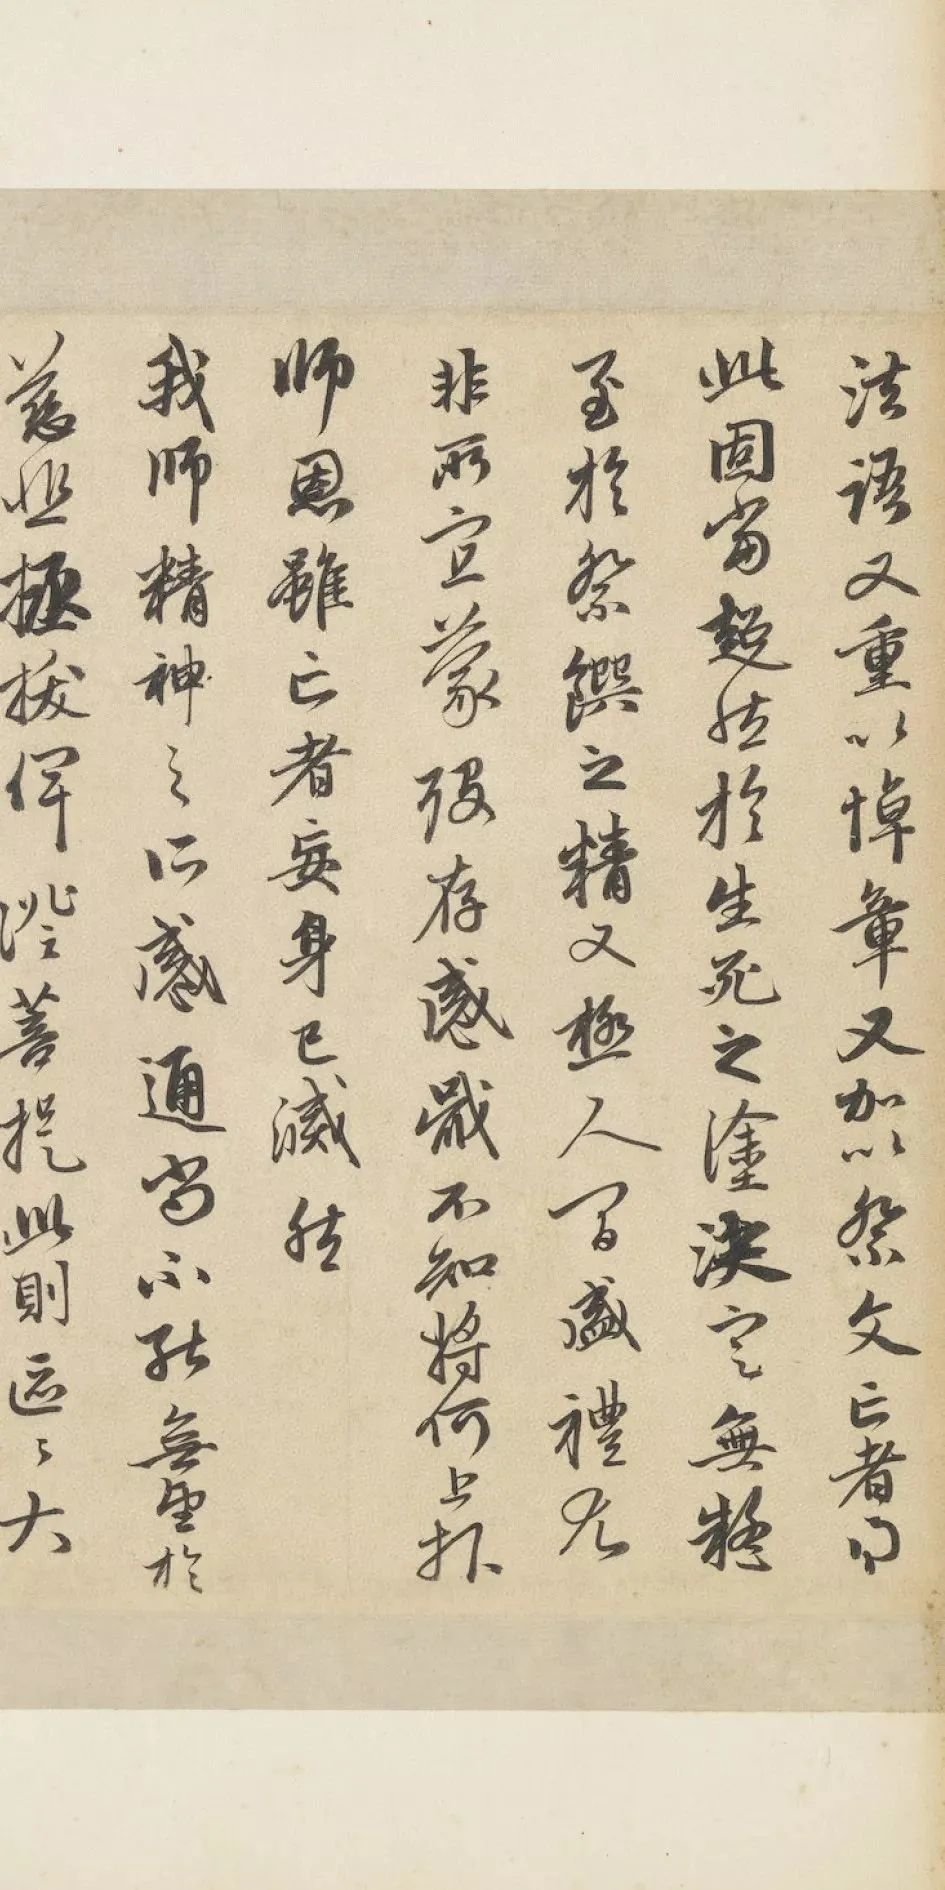 法語又重以悼章又加以祭文亡者得
此固當超然於生死之塗決定無疑
至於祭饌之精又極人間盛禮尤
非所宜蒙歿存感戴不知將何上報
師恩雖亡者妄身已滅然
我師精神之所感通尚不能無望於
慈悲極拔俾證菩提此則區區大